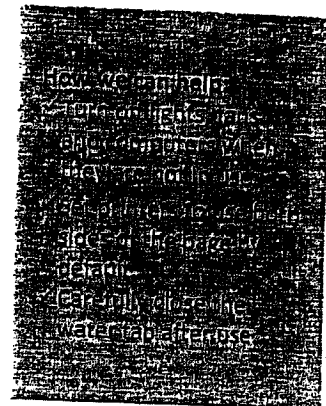 How we can help:
Turn off lights, fans
and computers when
they are not in use.
Set printers to use both
sides of the page by
default.
Carefully close the
water tap after use.